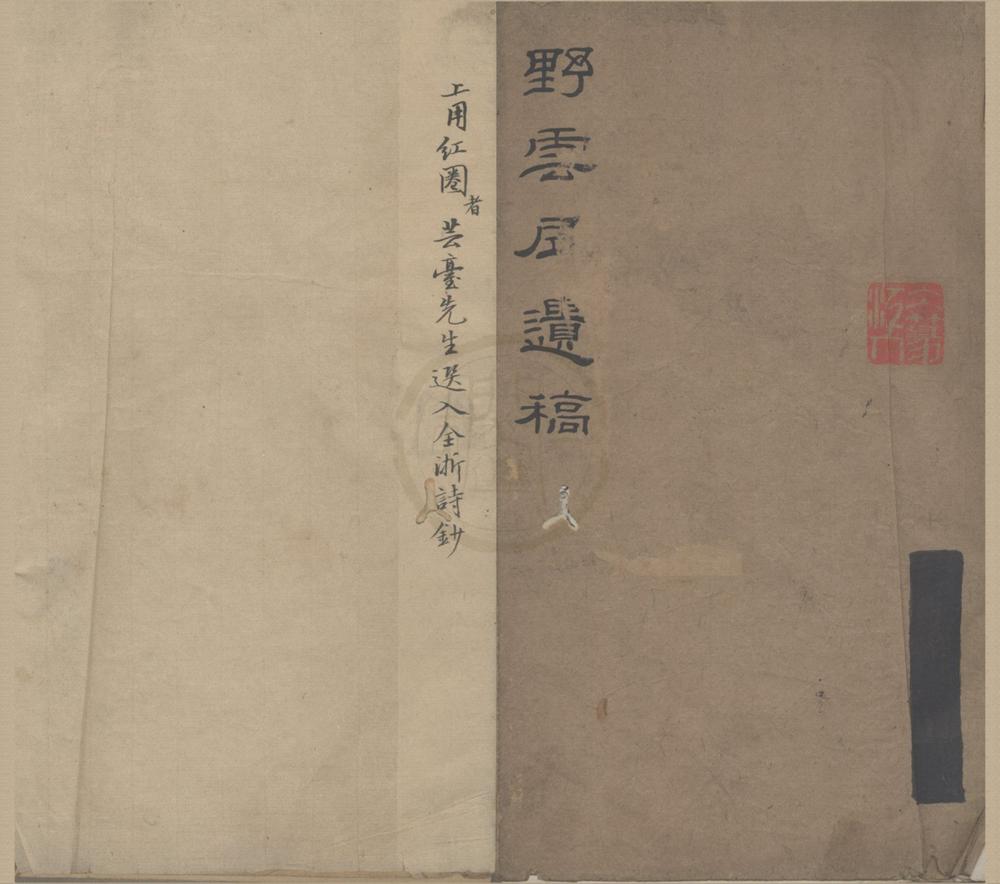 野雲居遺稿
上用红圏者芸臺先生選入全浙詩鈔